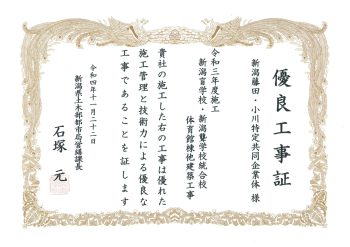 優良工事証
新潟藤田・小川特定共同企業体 様
令和三年度施工
新潟盲学校・新潟聾学校統合校
体育館棟他建築工事
貴社の施工した右の工事は優れた
施工管理と技術力による優良な
工事であることを証します
令和四年十一月二十二日
新潟県土木部都市局営繕課長
石塚 元